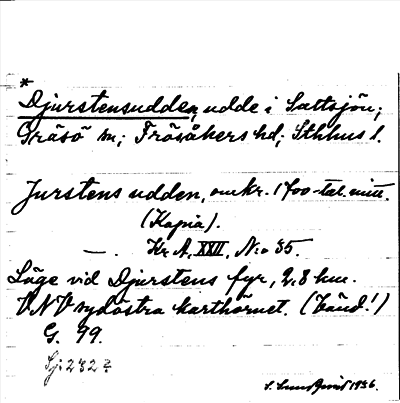 *
Djurstensudden, udde i Saltsjön;
Gräsö sn; Frösåkers hd; Sthlms l.
Jurstens udden, omkr. 1700-tal. mitt.
(Kopia).
—. Kr. A, XXII, N:o 35.
Läge vid Djurstens fyr, 2.8 km.
VNV sydöstra karthörnet. (Länd!)
G. 99.
Sj: 282
S. Lundqvist 1936.